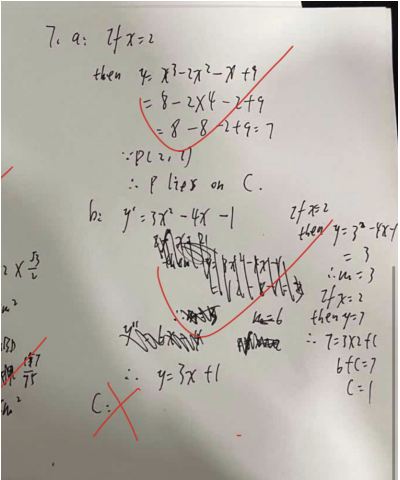 7. a: If x=2
then y= x³-2x²-x+9
= 8-2×4-2+9
= 8-8-2+9=7
∵ P(2,7)
∴ P lies on C.
b: y'=3x²-4x-1
m=6
∴ y=3x+1
C:
If x=2
then y=3ˣ-4x-1
= 3
∴ m=3
If x=2
then y=7
∴ 7=3×2+C
6+C=7
C=1
2 × √3/2
m²
75
m²